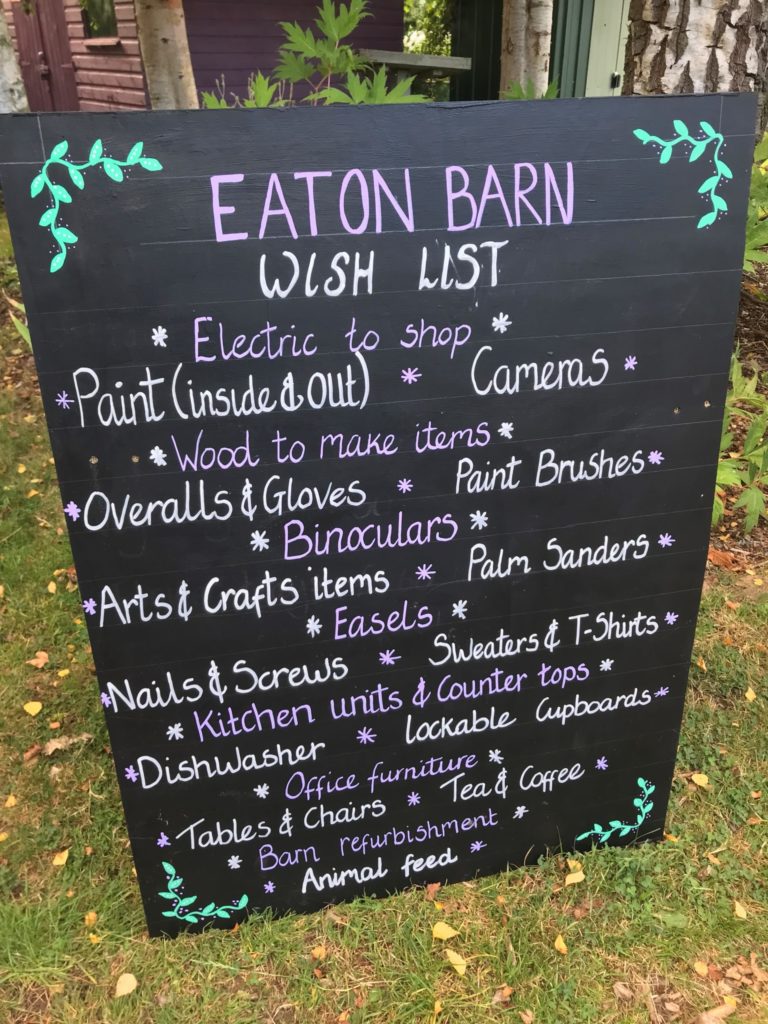 EATON BARN
WISH LIST
* Electric to shop *
* Paint (inside & out) * Cameras *
* Wood to make items *
* Overalls & Gloves * Paint Brushes *
* Binoculars *
* Arts & Crafts items * Palm Sanders *
* Easels *
* Nails & Screws * Sweaters & T-Shirts *
* Kitchen units & Counter tops *
* Dishwasher * Lockable Cupboards *
* Office furniture *
* Tables & Chairs * Tea & Coffee *
* Barn refurbishment *
* Animal feed *